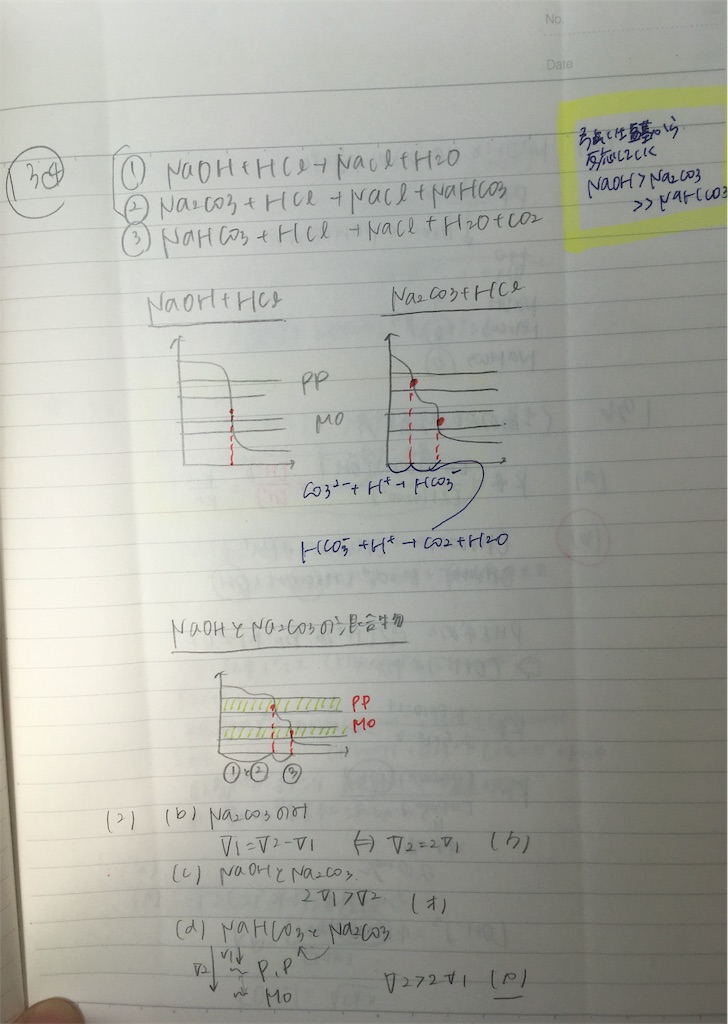 No.
Date
134
① NaOH + HCl → NaCl + H2O
② Na2CO3 + HCl → NaCl + NaHCO3
③ NaHCO3 + HCl → NaCl + H2O + CO2
NaOH > Na2CO3
>> NaHCO3
NaOH + HCl
Na2CO3 + HCl
PP
MO
CO3²⁻ + H⁺ → HCO3⁻
HCO3⁻ + H⁺ → CO2 + H2O
NaOHとNa2CO3の混合物
PP
MO
①と② ③
(2) (b) Na2CO3のみ
V1 = V2 - V1 ⇔ V2 = 2V1 (う)
(c) NaOHとNa2CO3.
2V1 > V2 (オ)
(d) NaHCO3とNa2CO3
V1
V2
P.P
MO
V2 > 2V1